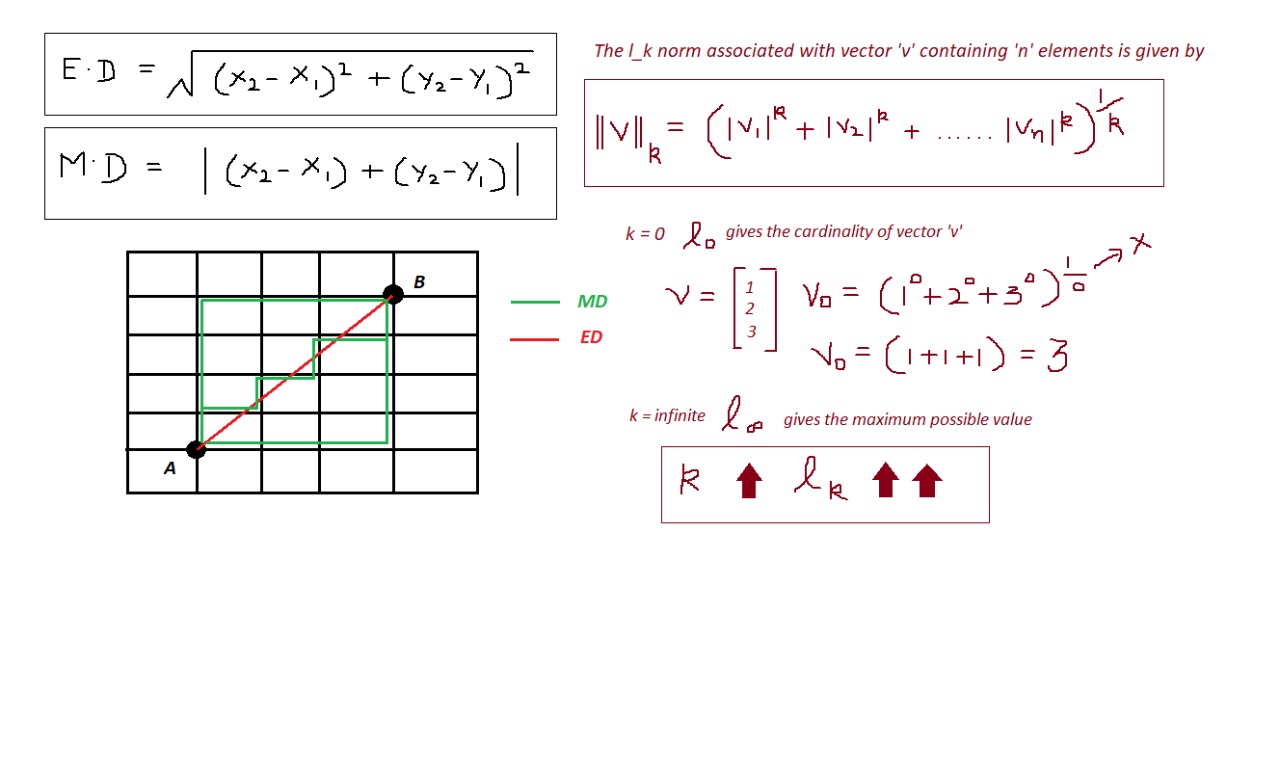 E.D = √(x₂ - x₁)² + (y₂ - y₁)²
M.D = |(x₂ - x₁) + (y₂ - y₁)|
B
MD
ED
A
The l_k norm associated with vector 'v' containing 'n' elements is given by
‖v‖ₖ = (|v₁|ᵏ + |v₂|ᵏ + ...... |vₙ|ᵏ)^1/k
k = 0 l₀ gives the cardinality of vector 'v'
v = [1 2 3] v₀ = (1⁰ + 2⁰ + 3⁰)^1/0 → x
v₀ = (1 + 1 + 1) = 3
k = infinite l∞ gives the maximum possible value
k ⬆ lₖ ⬆⬆